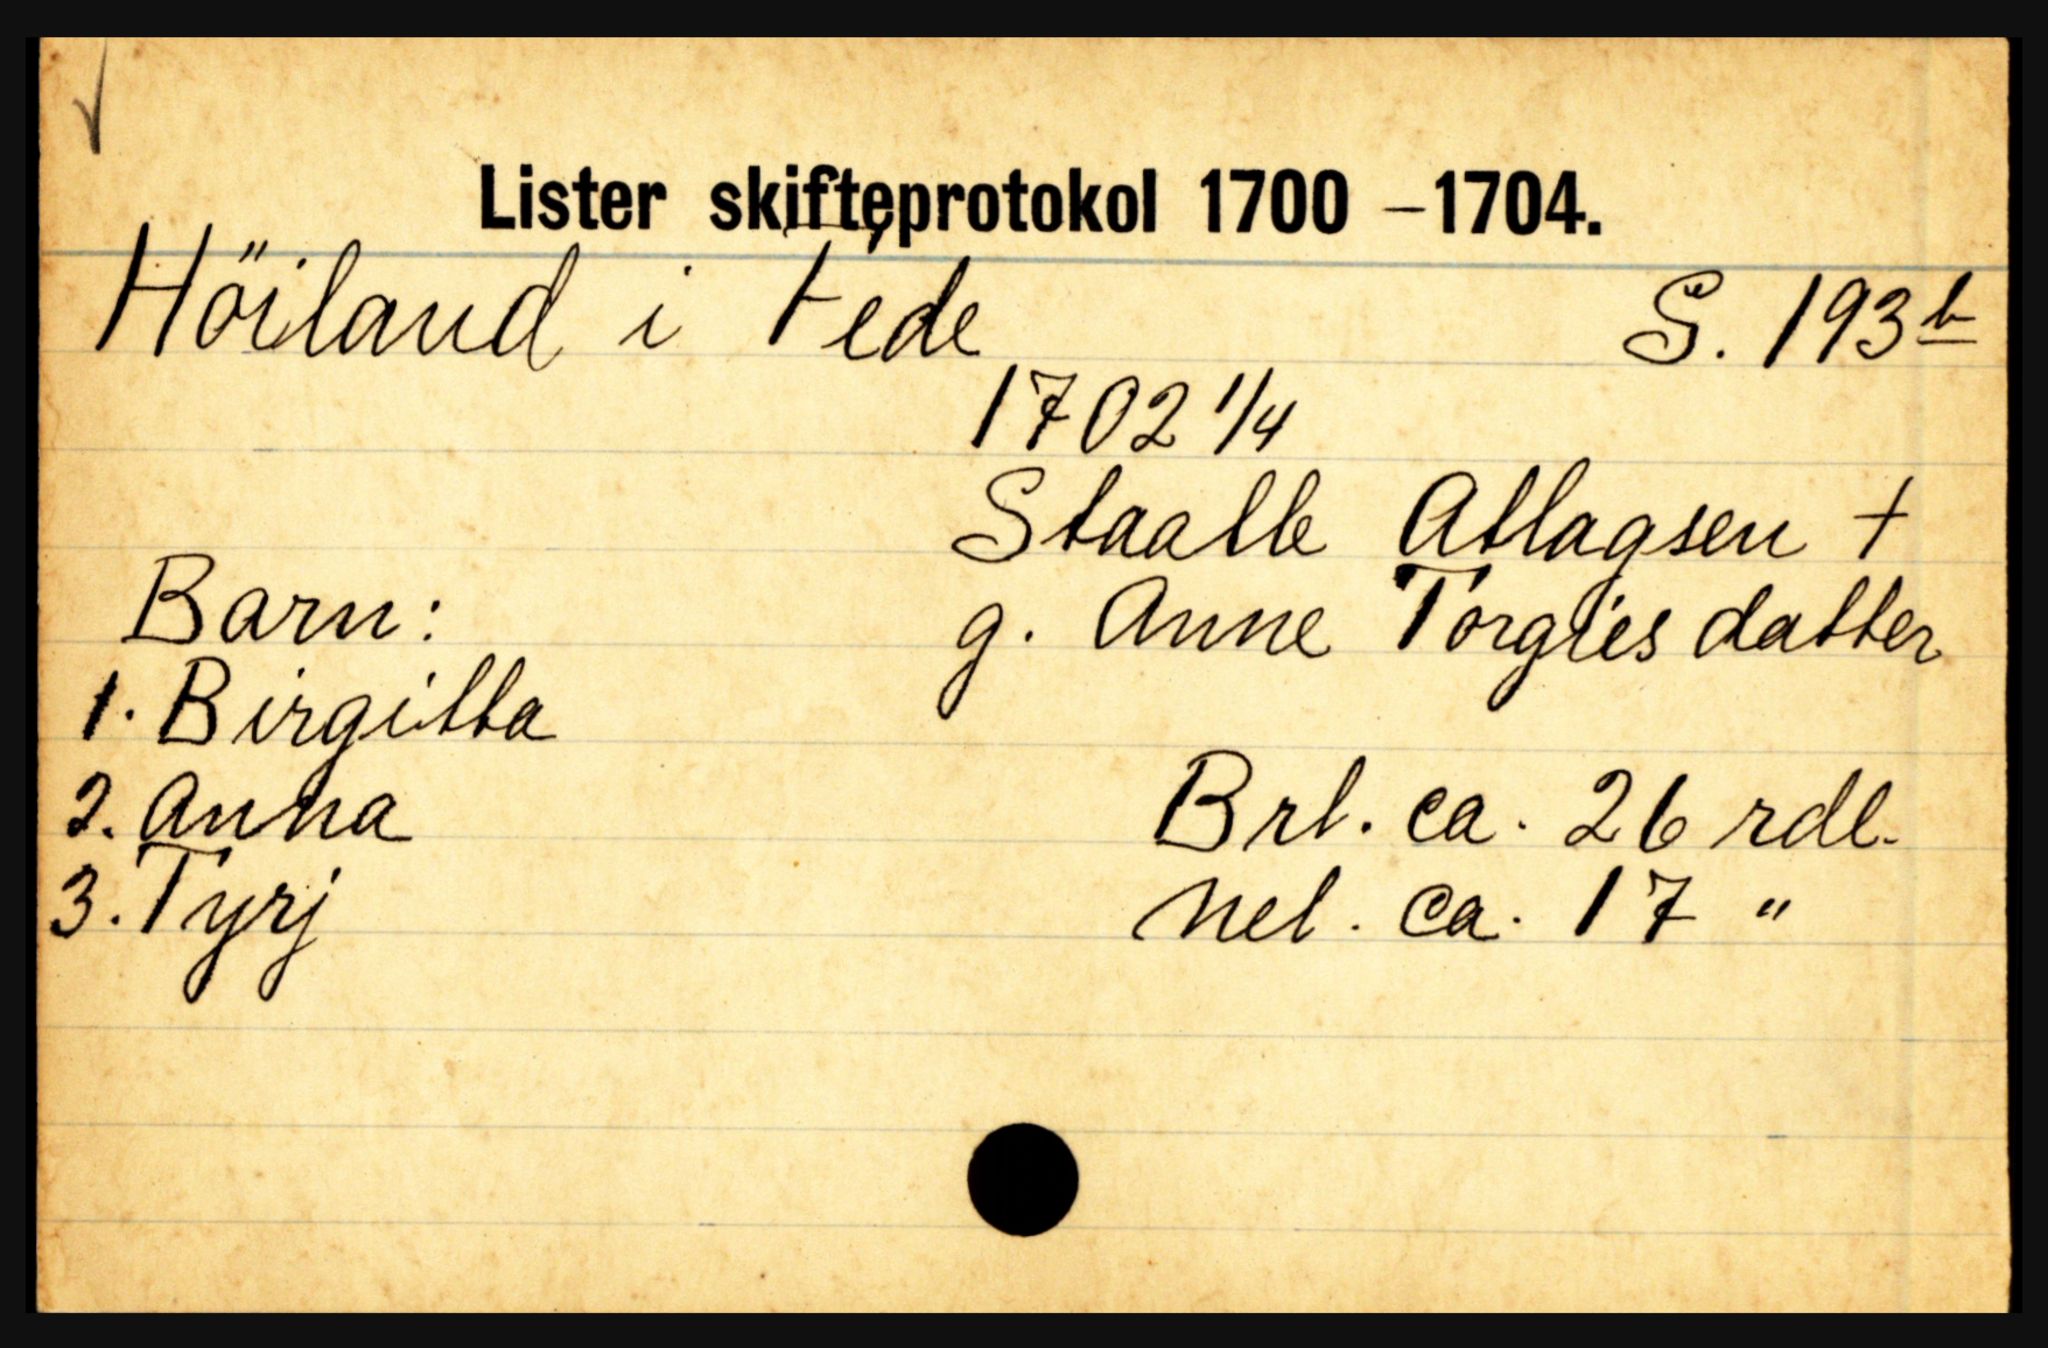 Lister skifteprotokol 1700 – 1704.
Höiland i Fede S. 193 b
1702 1/4
Staalle Atlagsen +
Barn: g. Anne Torgiesdatter
1. Birgitta
2. Anna Brl. ca. 26 rdl.
3. Tyrj Nel. ca. 17 "